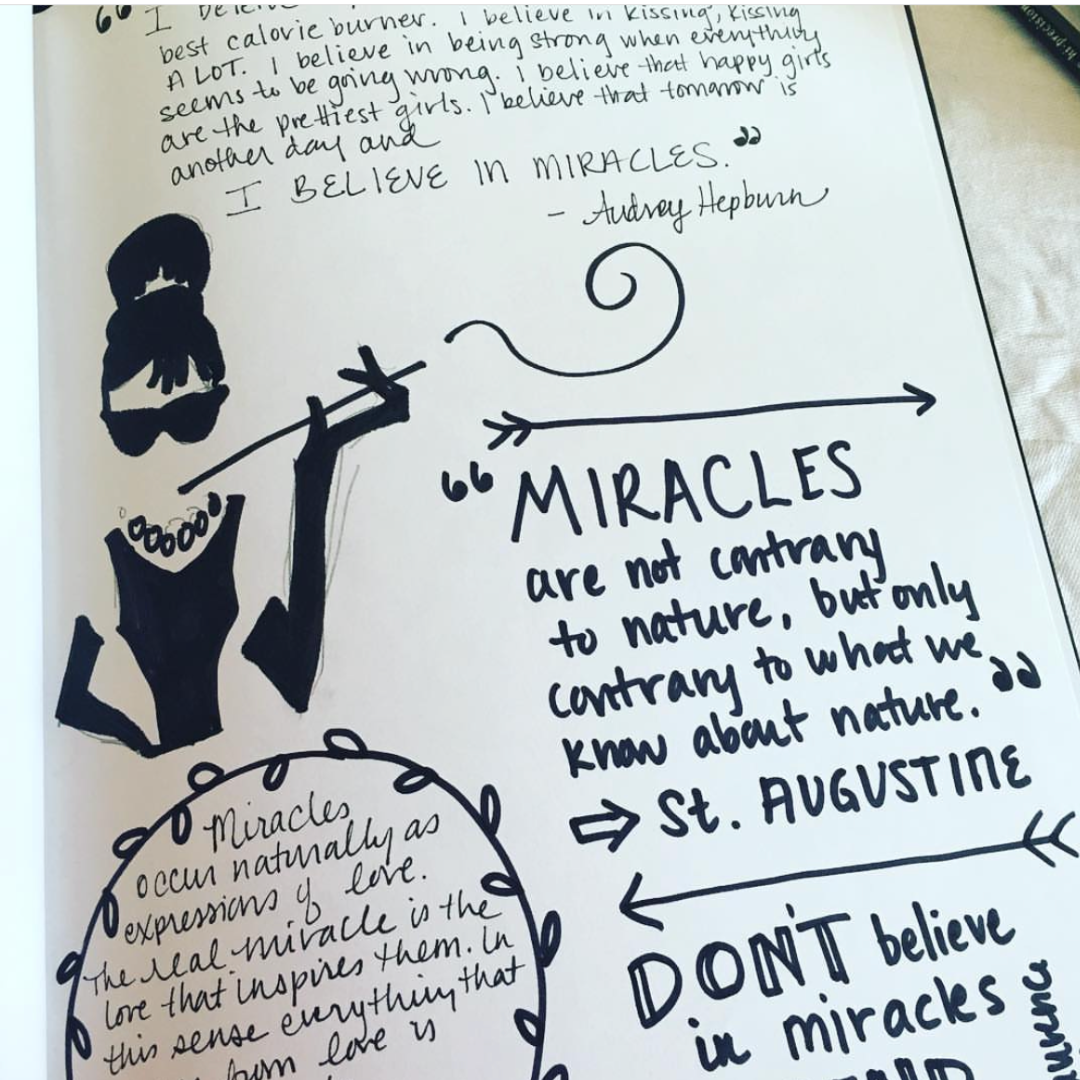 “ I
best calorie burner. I believe in kissing, kissing
A LOT. I believe in being strong when everything
seems to be going wrong. I believe that happy girls
are the prettiest girls. I believe that tomorrow is
another day and
I BELIEVE IN MIRACLES.”
- Audrey Hepburn
“MIRACLES
are not contrary
to nature, but only
contrary to what we
know about nature.”
⇨ St. AUGUSTINE
Miracles
occur naturally as
expressions of love.
The real miracle is the
love that inspires them. In
this sense everything that
from love is
DON'T believe
in miracles
hi-precision